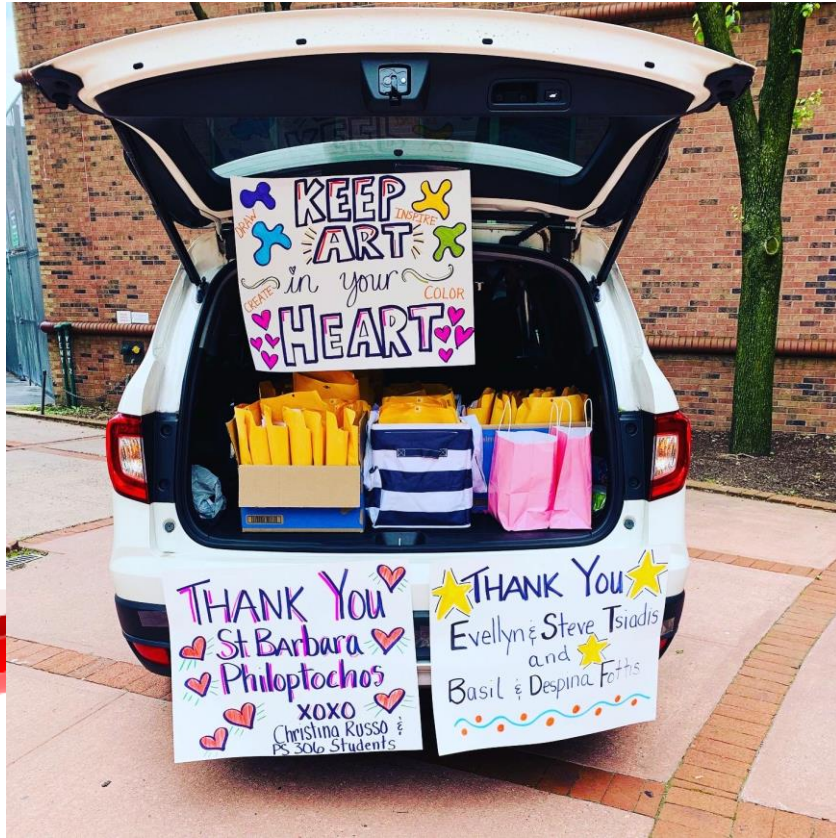 KEEP
DRAW
INSPIRE
ART
in your
CREATE
COLOR
HEART
THANK You
St Barbara
Philoptochos
xoxo
Christina Russo &
PS 306 Students
THANK You
Evellyn & Steve Tsiadis
and
Basil & Despina Fottis